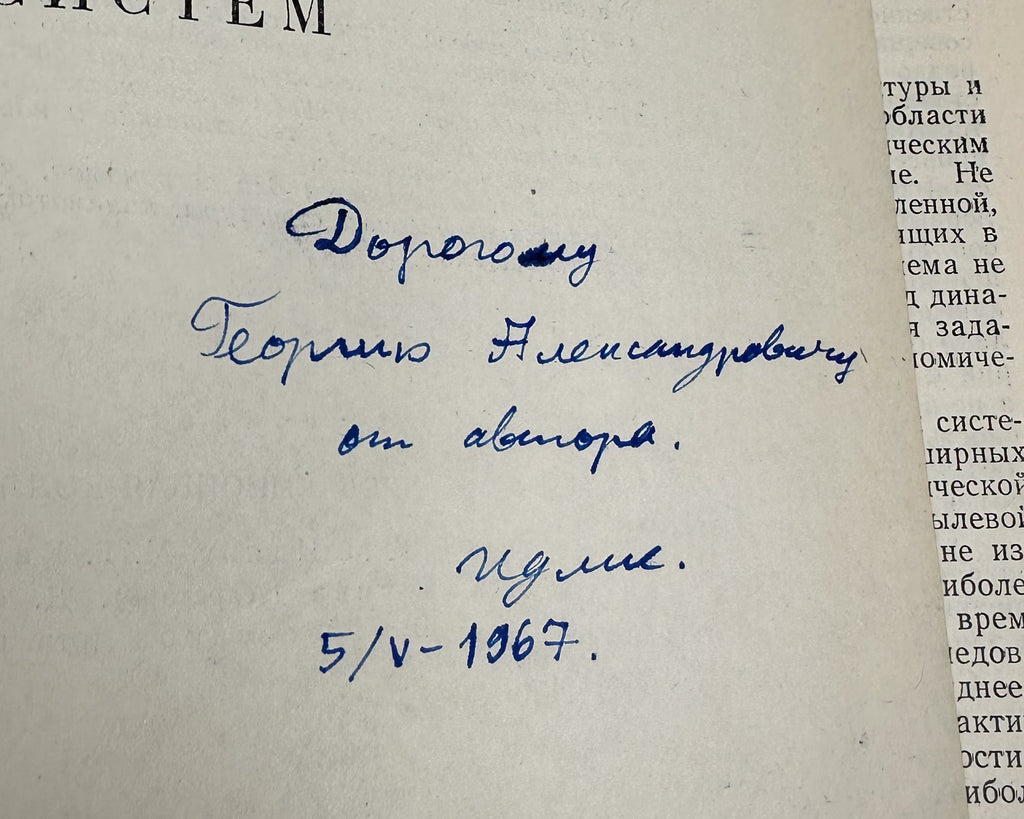 СИСТЕМ
Дорогому
Георгию Александровичу
от автора.
5/V-1967.
туры и
области
ическим
ие. Не
ленной,
ящих в
ема не
д дина-
я зада-
номиче-
систе-
ширных
ической
ылевой
не из
иболе
врем
ледов
днее
акти
ости
ибол